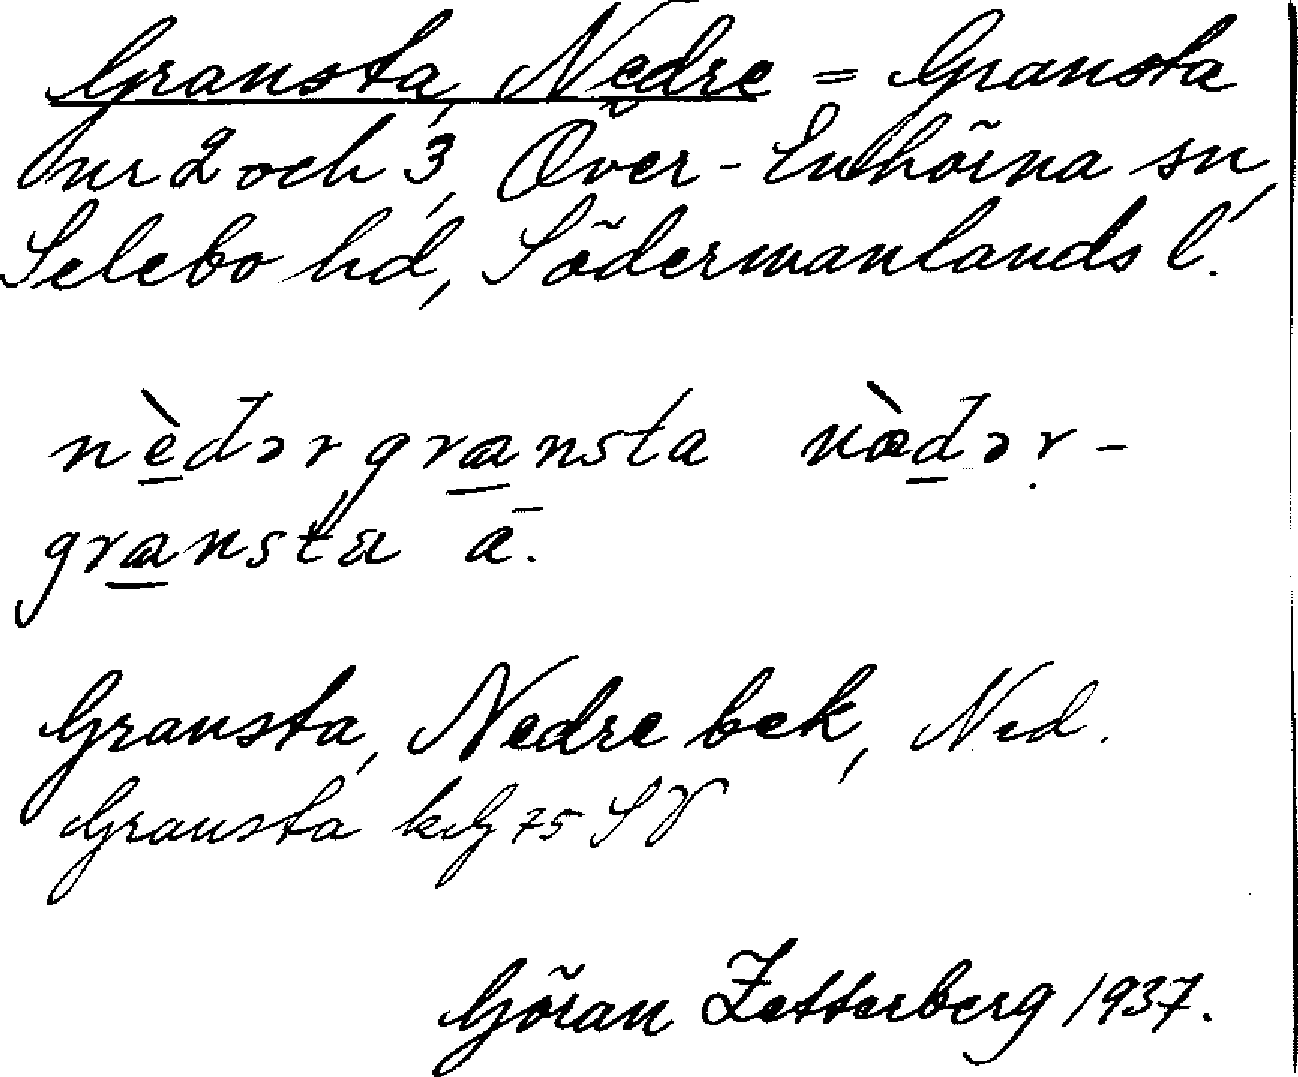 Gransta, Nedre = Gransta
nr 2 och 3, Över-Enhörna sn,
Selebo hd, Södermanlands l.
nèdər gransta nàdər-
gransta ä.
Gransta, Nedre bek, Ned.
Gransta
75 SV
Göran Zetterberg 1937.